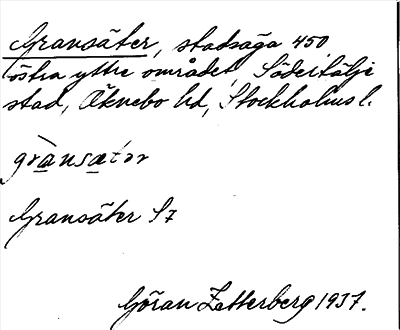 Gransäter, stadsäga 450
östra yttre området, Södertälje
stad, Öknebo hd, Stockholms l.
grànsætər
Gransäter S7
Göran Zetterberg 1937.